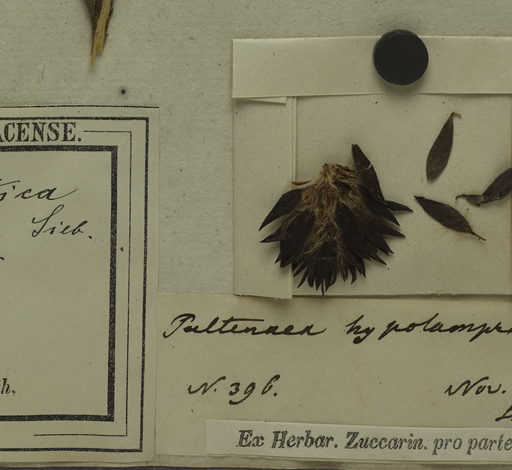 ACENSE.
ica
Sieb.
h.
Pultenaea hypolampr
N. 396.
Nov.
Ex Herbar. Zuccarin. pro parte